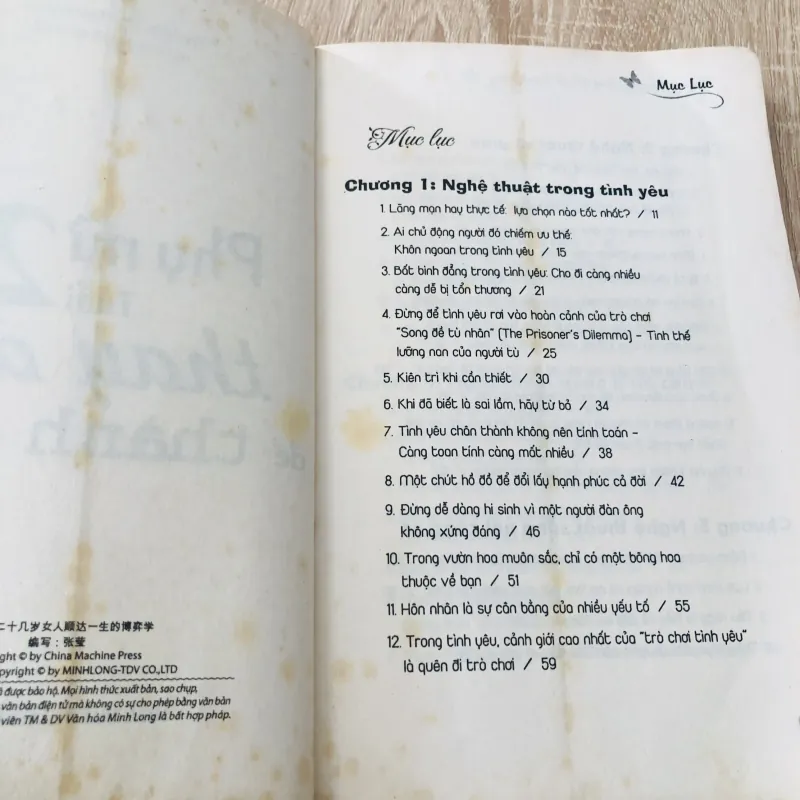 二十几岁女人顺达一生的博弈学
编写：张莹
ght © by China Machine Press
opyright © by MINHLONG-TDV CO.,LTD
được bảo hộ. Mọi hình thức xuất bản, sao chụp,
văn bản điện tử mà không có sự cho phép bằng văn bản
viên TM & DV Văn hóa Minh Long là bất hợp pháp.
Mục Lục
Mục lục
Chương 1: Nghệ thuật trong tình yêu
1. Lãng mạn hay thực tế: lựa chọn nào tốt nhất? / 11
2. Ai chủ động người đó chiếm ưu thế:
Khôn ngoan trong tình yêu / 15
3. Bất bình đẳng trong tình yêu: Cho đi càng nhiều
càng dễ bị tổn thương / 21
4. Đừng để tình yêu rơi vào hoàn cảnh của trò chơi
"Song đề tù nhân" (The Prisoner's Dilemma) – Tình thế
lưỡng nan của người tù / 25
5. Kiên trì khi cần thiết / 30
6. Khi đã biết là sai lầm, hãy từ bỏ / 34
7. Tình yêu chân thành không nên tính toán –
Càng toan tính càng mất nhiều / 38
8. Một chút hồ đồ để đổi lấy hạnh phúc cả đời / 42
9. Đừng dễ dàng hi sinh vì một người đàn ông
không xứng đáng / 46
10. Trong vườn hoa muôn sắc, chỉ có một bông hoa
thuộc về bạn / 51
11. Hôn nhân là sự cân bằng của nhiều yếu tố / 55
12. Trong tình yêu, cảnh giới cao nhất của "trò chơi tình yêu"
là quên đi trò chơi / 59